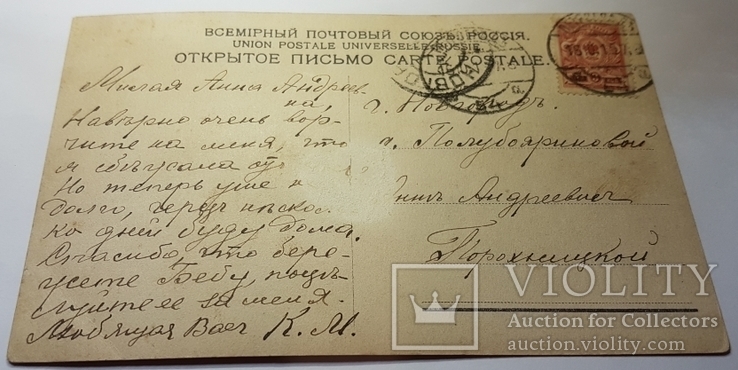 ВСЕМІРНЫЙ ПОЧТОВЫЙ СОЮЗЪ. РОССІЯ.
UNION POSTALE UNIVERSELLE. RUSSIE.
ОТКРЫТОЕ ПИСЬМО CARTE POSTALE.
Милая Анна Андреев-
на,
Навѣрно очень вор-
чите на меня, что
я сбѣжала
Но теперь уже
долго, черезъ нѣсколь-
ко дней буду дома.
Спасибо, что бере-
жете Бебу, поцѣ-
луйте ее за меня.
Любящая Васъ К. М.
г. Новгородъ.
Полубояриновой
Аннѣ Андреевнѣ
Порохницкой
VIOLITY
Auction for Collectors
auction.violity.com